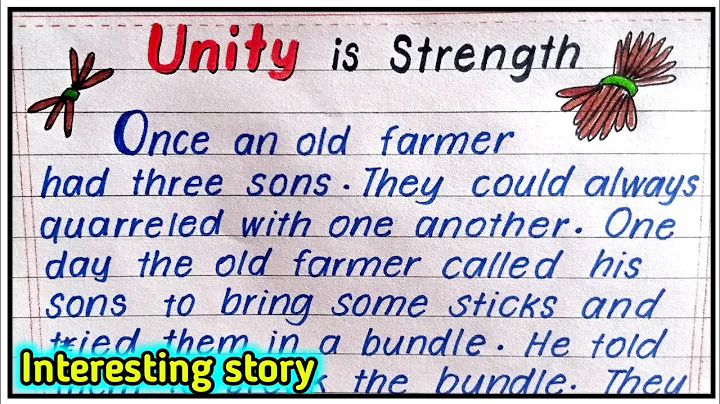 Unity is Strength
Once an old farmer
had three sons. They could always
quarreled with one another. One
day the old farmer called his
sons to bring some sticks and
tried them in a bundle. He told
the bundle. They
Interesting story